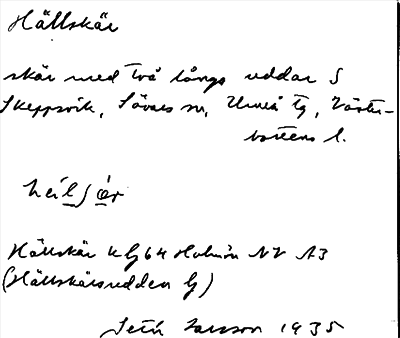 Hällskär
skär med två långa uddar S
Skeppsvik, Sävars sn, Umeå tg, Väster-
bottens l.
Hällskär K G 64 Holmön NV A3
(Hällskärsudden G)
Jansson 1935